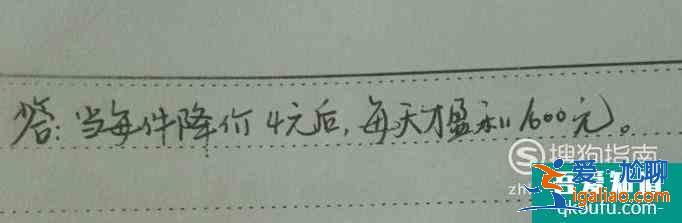 答:当每件降价4元后,每天才盈利1600元。
搜狗指南
爱尴聊
igaliao.com
qkoufu.com